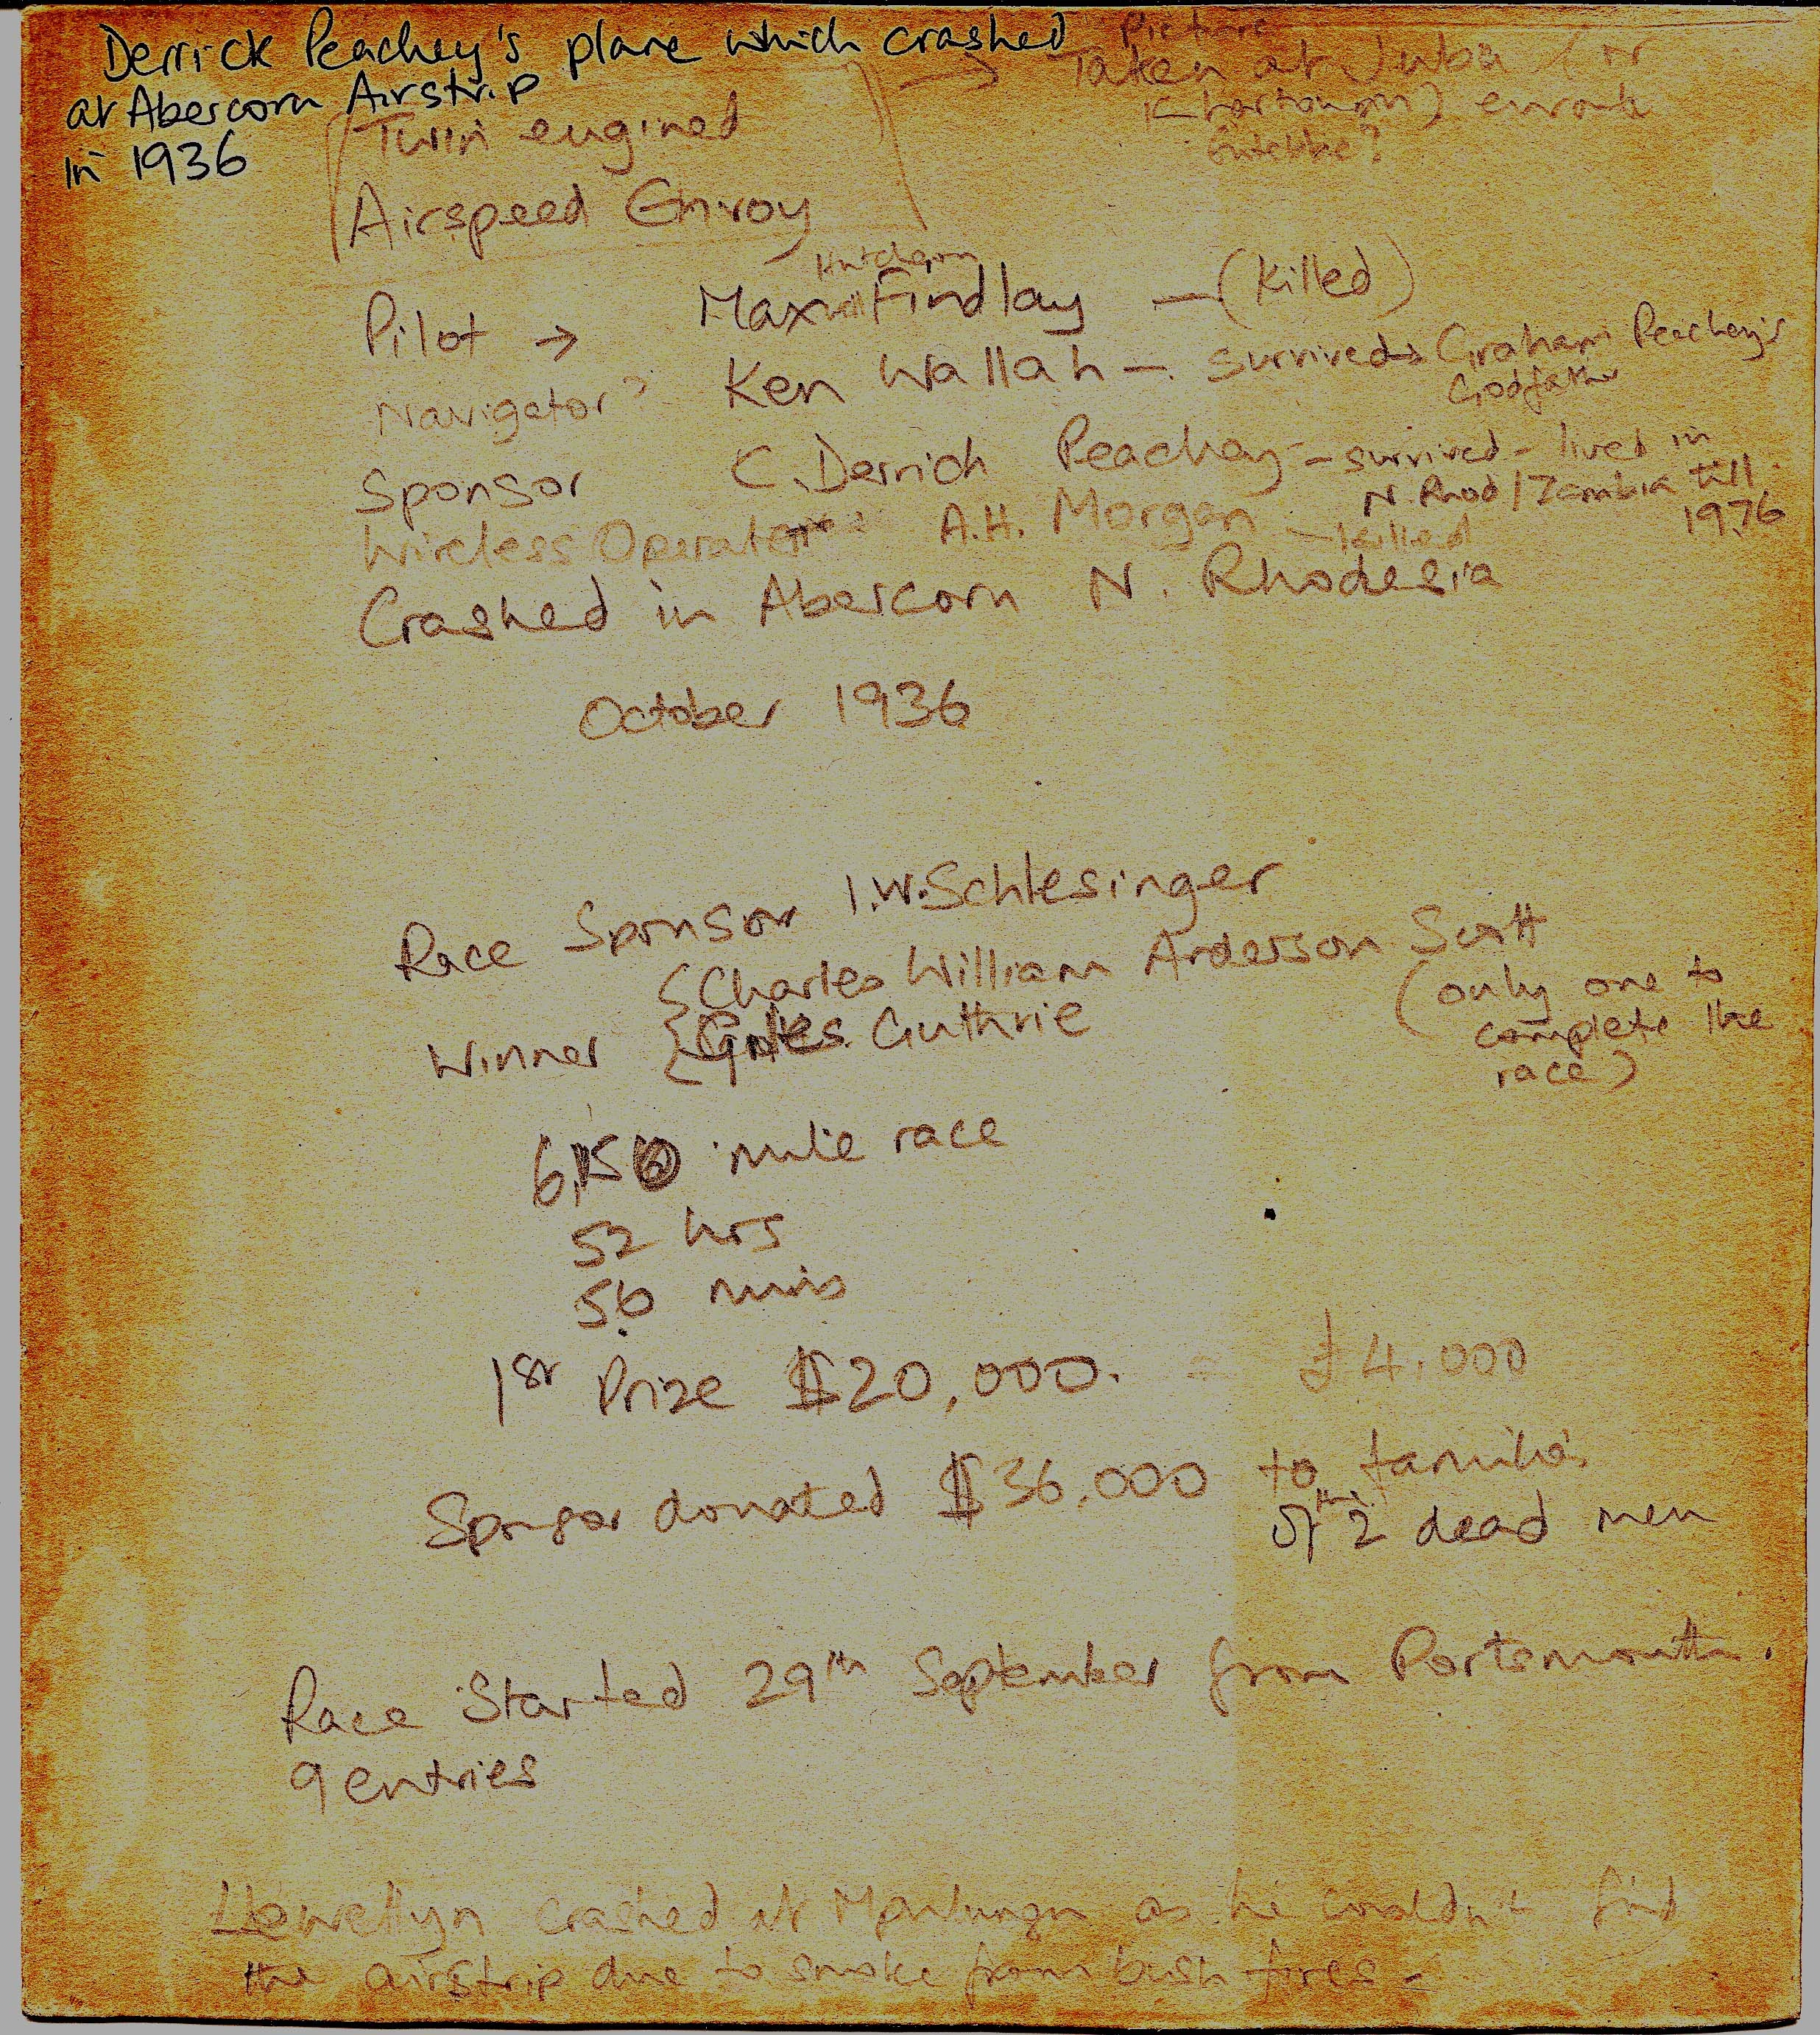 Derrick Peachey's plane which crashed
at Abercorn Airstrip
in 1936
Picture
Taken at Juba (or
Khartoum) enroute
Entebbe?
Twin engined
Airspeed Envoy
Pilot → Max Findlay — (Killed)
Navigator? Ken Wallah — survived → Graham Peachey's
Godfather
Sponsor C. Derrick Peachey — survived - lived in
N. Rhod / Zambia till
1976
Wireless Operator A.H. Morgan — killed
Crashed in Abercorn N. Rhodesia
October 1936
Race Sponsor I.W. Schlesinger
Winner { Charles William Anderson Scott
{ Giles Guthrie
(only one to
complete the
race)
6,150 mile race
52 hrs
56 mins
1st Prize $20,000. = £4,000
Sponsor donated $36,000 to families
of the 2 dead men
Race Started 29th September from Portsmouth.
9 entries
Llewellyn crashed at as he couldn't find
the airstrip due to smoke from bush fires -